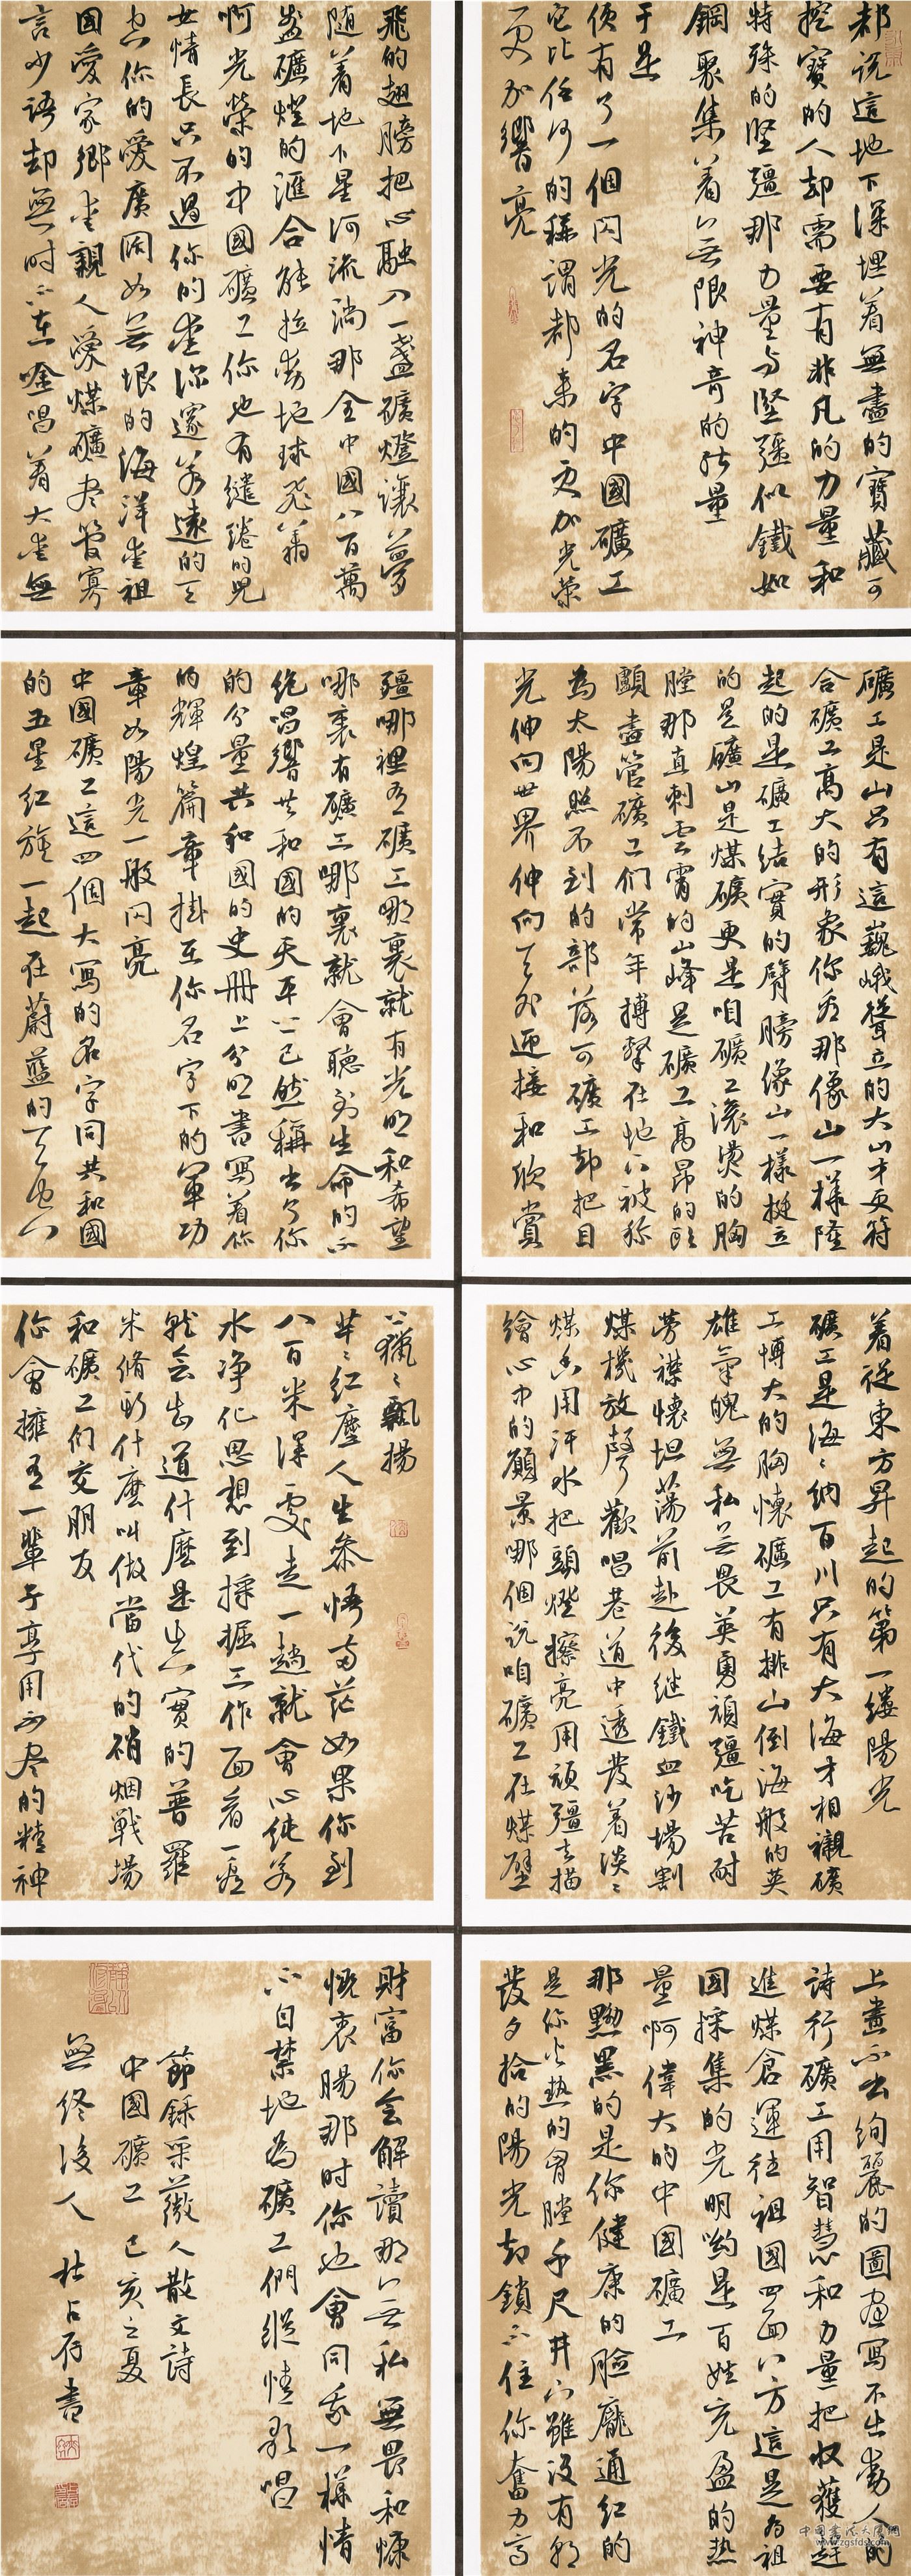 都說這地下深埋着無盡的寶藏可
挖寶的人却需要有非凡的力量和
特殊的堅彊那力量与堅彊似鐵如
鋼聚集着無限神奇的能量
于是
便有了一個閃光的名字中國礦工
它比任何的稱謂都来的更加光榮
更加響亮
礦工是山只有這巍峨聳立的大山才更符
合礦工高大的形象你看那像山一樣隆
起的是礦工结實的臂膀像山一樣挺立
的是礦山是煤礦更是咱礦工滚燙的胸
膛那直刺雲霄的山峰是礦工高昂的頭
顱盡管礦工们常年搏擊在地下被称
為太陽照不到的部落可礦工却把目
光伸向世界伸向天外迎接和欣賞
着從東方昇起的第一縷陽光
礦工是海海納百川只有大海才相襯礦
工博大的胸懷礦工有排山倒海般的英
雄氣魄無私無畏英勇頑彊吃苦耐
勞襟懷坦蕩前赴後继鐵血沙場割
煤機放聲歡唱巷道中透發着淡淡
煤香用汗水把頭燈擦亮用頑彊去描
繪心中的願景哪個說咱礦工在煤壁
上畫不出絢麗的圖画寫不出動人的
詩行礦工用智慧和力量把收獲趕
進煤倉運往祖國四面八方這是為祖
國採集的光明喲是百姓充盈的熱
量啊偉大的中國礦工
那黝黑的是你健康的臉龐通红的
是你火热的胸膛千尺井下雖没有朝
發夕拾的陽光却鎖不住你奮力高
飛的翅膀把心融入一盞礦燈讓夢
随着地下星河流淌那全中國八百萬
盞礦燈的滙合能拉動地球飛翔
啊光榮的中國礦工你也有繾綣的兒
女情長只不過你的愛深邃若遠的天
空你的愛廣闊如無垠的海洋愛祖
國愛家鄉愛親人愛煤礦尽管寡
言少語却無時不在唫唱着大愛無
彊哪裡有礦工哪裏就有光明和希望
哪裏有礦工哪裏就會聽到生命的不
绝唱響共和國的天平上已然稱出了你
的分量共和國的史册上分明書寫着你
的輝煌篇章掛在你名字下的軍功
章如陽光一般閃亮
中國礦工這四個大寫的名字同共和國
的五星红旗一起在蔚藍的天空
下獵獵飄揚
茫茫红塵人生參悟而茫如果你到
八百米深處走一趟就會心純若
水净化思想到採掘工作面看一看
就會知道什麼是真實的普羅
米脩斯什麼叫做當代的硝烟戰場
和礦工们交朋友
你會擁有一輩子享用不尽的精神
財富你会解讀那無私無畏和慷
慨衷腸那时你也會同我一樣情
不自禁地為礦工們縱情歌唱
節錄采薇人散文詩
中國礦工己亥之夏
無终後人杜占府書
中国書法大厦网
www.zgsfds.com